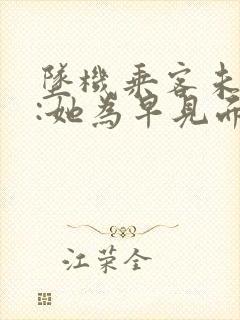 墜機乘客未
:她為早見而
江荣全